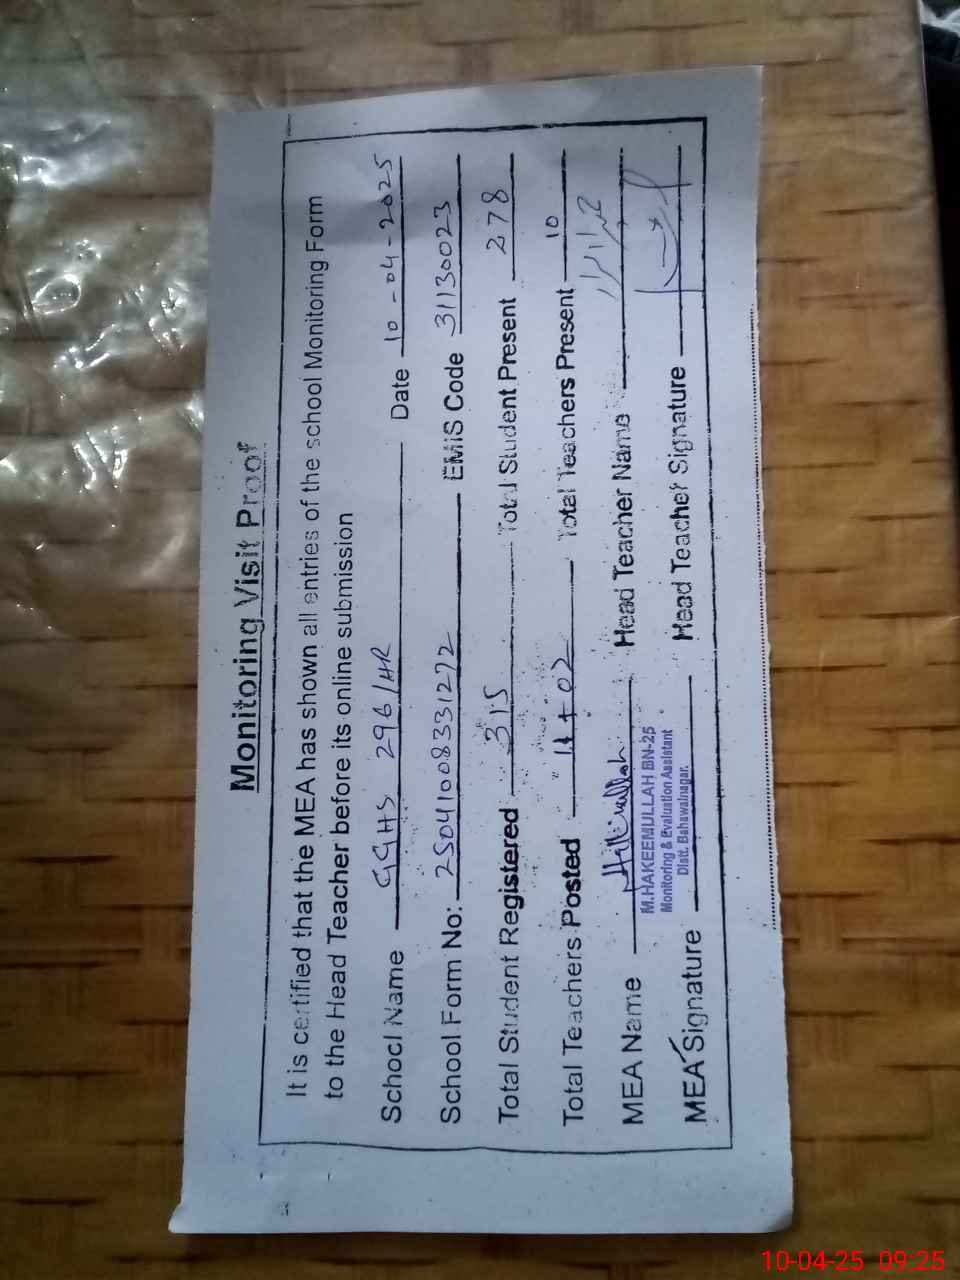 Monitoring Visit Proof
It is certified that the MEA has shown all entries of the school Monitoring Form
to the Head Teacher before its online submission
School Name GGHS 296/HR Date 10-04-2025
School Form No: 25041008331272 EMIS Code 31130023
Total Student Registered 315 Total Student Present 278
Total Teachers Posted 11+02 Total Teachers Present 10
MEA Name Head Teacher Name
M.HAKEEMULLAH BN-25
Monitoring & Evaluation Assistant
Distt. Bahawalnagar.
MEA Signature Head Teacher Signature
10-04-25 09:25